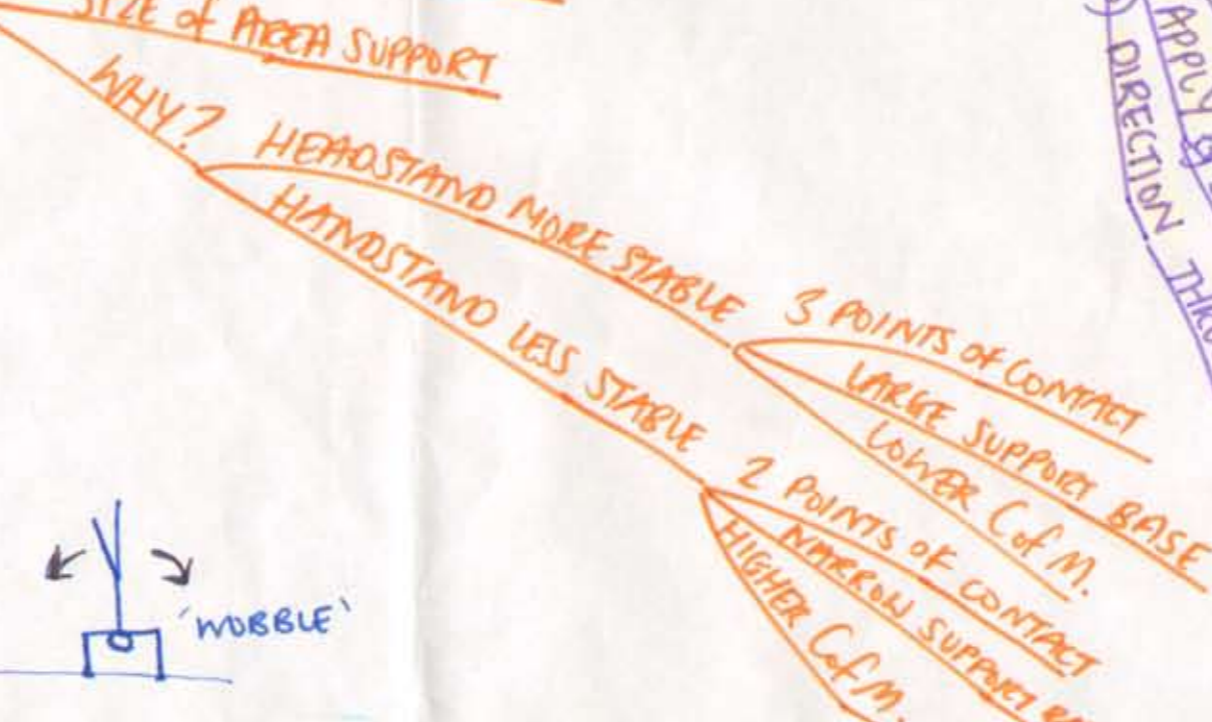 SIZE of AREA SUPPORT
WHY?
HEADSTAND MORE STABLE
3 POINTS of CONTACT
LARGE SUPPORT BASE
LOWER C of M.
HANDSTAND LESS STABLE
2 POINTS OF CONTACT
NARROW SUPPORT
HIGHER C of M.
'WOBBLE'
APPLY
DIRECTION